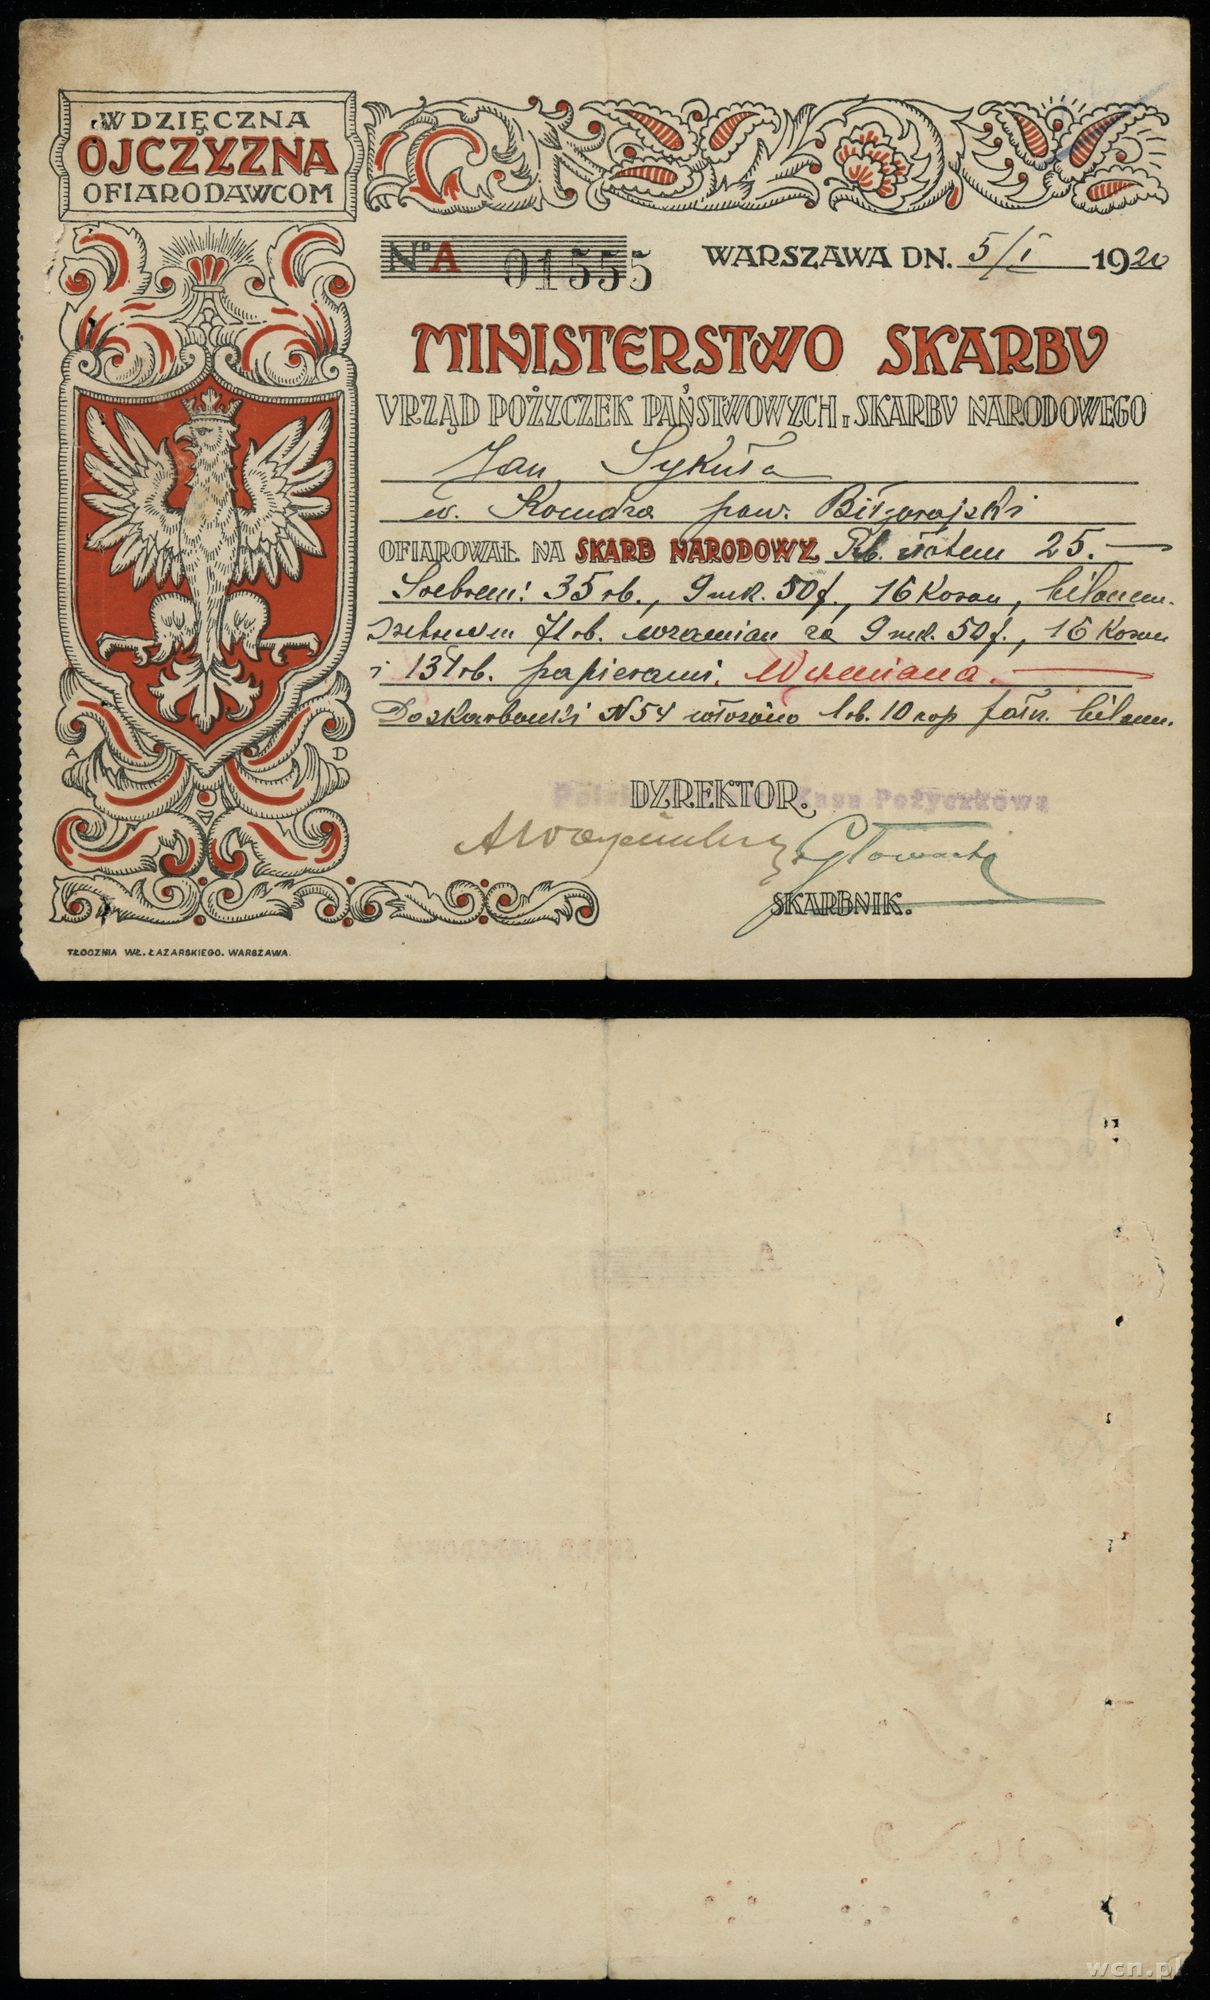 WDZIĘCZNA
OJCZYZNA
OFIARODAWCOM
No A 01555
WARSZAWA DN. 5/I 1920
MINISTERSTWO SKARBU
URZĄD POŻYCZEK PAŃSTWOWYCH I SKARBU NARODOWEGO
Jan Sykuła
w. pow. Biłgorajski
OFIAROWAŁ NA SKARB NARODOWY Rb. złotem 25.—
Srebrem: 35 rb., 9 mk. 50 f., 16 Koron, bilonem
srebrnem 71 rb. wzamian za 9 mk. 50 f., 16 Koron
i 131 rb. papierami. Wymiana.—
Do skarbonki N 54 włożono 1 rb. 10 kop bilon.
A D
DYREKTOR.
Kasa Pożyczkowa
SKARBNIK.
TŁOCZNIA WŁ. ŁAZARSKIEGO. WARSZAWA.
wcn.pl